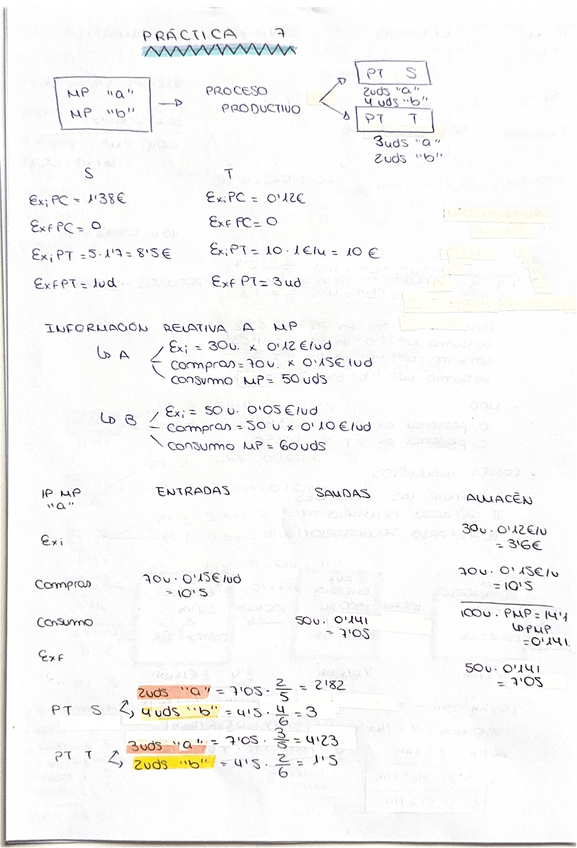 PRÁCTICA 7
MP "a"
MP "b"
PROCESO
PRODUCTIVO
PT S
2uds "a"
4 uds "b"
PT T
3uds "a"
2uds "b"
S
T
ExiPC = 1'38€
ExiPC = 0'12€
ExfPC = 0
ExfPC = 0
ExiPT = 5·1'7 = 8'5€
ExiPT = 10·1€/u = 10 €
ExfPT = 1ud
ExfPT = 3ud
INFORMACIÓN RELATIVA A MP
↳ A
Exi = 30u. x 0'12€/ud
compras = 70u. x 0'15€/ud
consumo MP = 50uds
↳ B
Exi = 50 u. 0'05€/ud
compras = 50 u x 0'10 €/ud
consumo MP = 60uds
IP MP ENTRADAS SALIDAS ALMACÉN
"a"
Exi
30u·0'12€/u
= 3'6€
Compras 70u·0'15€/ud 70u·0'15€/u
= 10'5 = 10'5
Consumo 50u·0'141 100u·PMP = 14'1
= 7'05 ↳PMP
= 0'141
Exf
50u·0'141
= 7'05
PT S
2uds "a" = 7'05·2/5 = 2'82
4uds "b" = 4'5·4/6 = 3
PT T
3uds "a" = 7'05·3/5 = 4'23
2uds "b" = 4'5·2/6 = 1'5